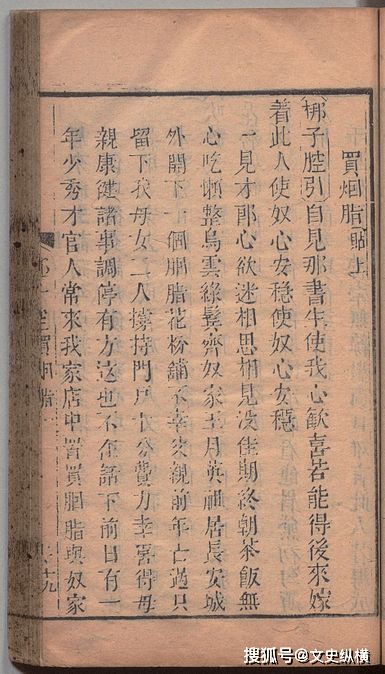 買胭脂 貼上
梆子腔引 自見那書生使我心歡喜若能得後來嫁
着此人使奴心安穩使奴心安穩
一見才郎心欲迷相思相見沒佳期終朝茶飯無
心吃懶整烏雲綠鬢齊奴家王月英祖居長安城
外開下一個胭脂花粉鋪不幸爹親前年亡過只
留下我母女二人撐持門戶十分費力幸喜得母
親康健諸事調停有方這也不在話下前日有一
年少秀才官人常來我家店中置買胭脂與奴家
買胭脂
搜狐号@文史纵横